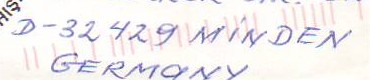 D-32429 MINDEN
GERMANY